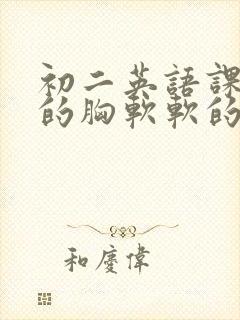 初二英語課
的胸軟軟的
和慶偉